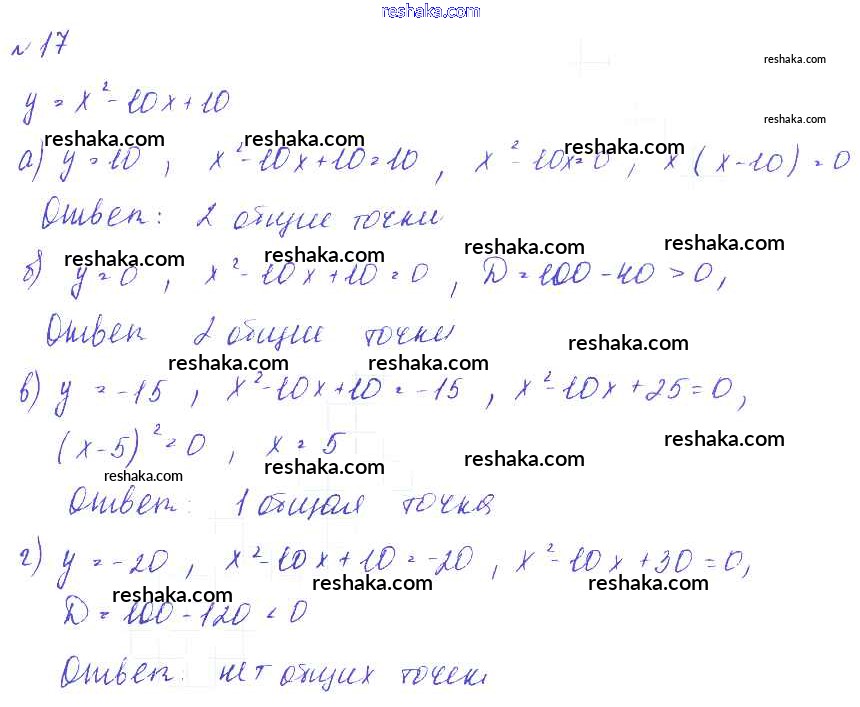 reshaka.com
№17
reshaka.com
y = x² - 10x + 10
reshaka.com
reshaka.com reshaka.com reshaka.com
а) y = 10 , x² - 10x + 10 = 10 , x² - 10x = 0 , x (x - 10) = 0
Ответ: 2 общие точки
reshaka.com reshaka.com reshaka.com reshaka.com
б) y = 0 , x² - 10x + 10 = 0 , D = 100 - 40 > 0,
Ответ 2 общие точки
reshaka.com
reshaka.com reshaka.com
в) y = -15 , x² - 10x + 10 = -15 , x² - 10x + 25 = 0,
(x - 5)² = 0 , x = 5
reshaka.com reshaka.com reshaka.com reshaka.com
Ответ: 1 общая точка
г) y = -20 , x² - 10x + 10 = -20 , x² - 10x + 30 = 0,
reshaka.com reshaka.com reshaka.com
D = 100 - 120 < 0
Ответ: нет общих точек